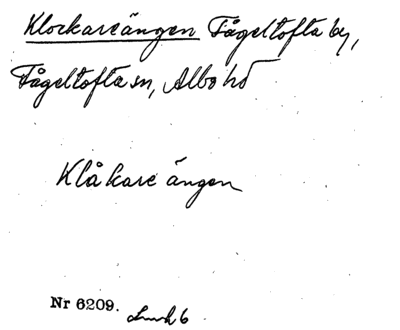 Klockareängen Fågeltofta by,
Fågeltofta sn, Albo hd
Klåkare ängen
Nr 6209.